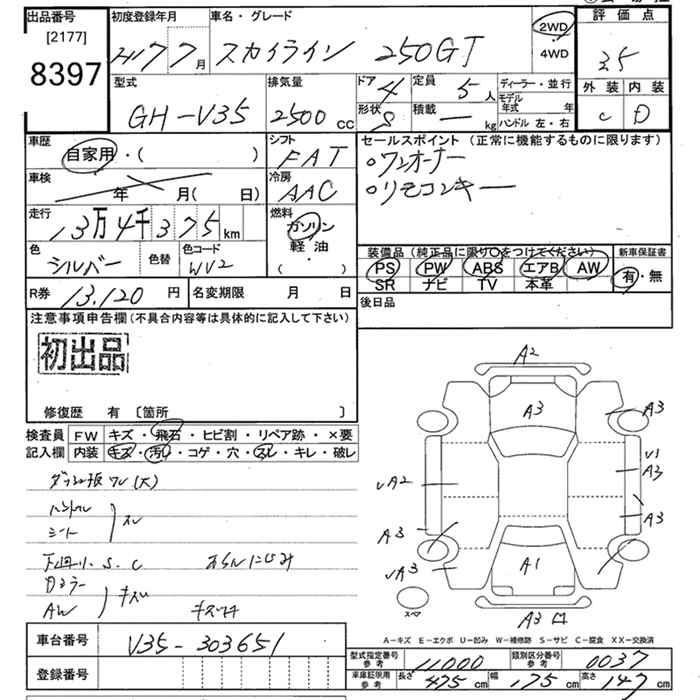 出品番号
[2177]
8397
初度登録年月
H17 7月
車名・グレード
スカイライン 250GT
2WD
・
4WD
評価点
3.5
外装 内装
C D
型式
GH-V35
排気量
2500 cc
ドア 4
定員 5人
形状 S
積載 — kg
ディーラー・並行
モデル年式 年
ハンドル 左・右
車歴
自家用・( )
シフト
FAT
セールスポイント (正常に機能するものに限ります)
○ワンオーナー
○リモコンキー
車検
年 月( 日)
冷房
AAC
走行
13万4千375km
燃料
ガソリン
軽・油
・
( )
色
シルバー
色替
色コード
WV2
装備品 (純正品に限り○をつけてください)
PS PW ABS エアB AW
SR ナビ TV 本革
新車保証書
有・無
R券 13,120円
名変期限 月 日
後日品
注意事項申告欄(不具合内容等は具体的に記入して下さい)
初出品
修復歴 有 〔箇所 〕
検査員記入欄
FW キズ・飛石・ヒビ割・リペア跡・×要
内装 キズ・汚レ・コゲ・穴・スレ・キレ・破レ
ハンドル
シート
スレ
下回り S.C
AW
キズ
A2
A3
A3
V1
A3
A3
A1
A3
UA2
A3
UA3
スペア
A-キズ E-エクボ U-凹み W-補修跡 S-サビ C-腐食 XX-交換済
車台番号 V35-303651
登録番号
型式指定番号 参考 11000
類別区分番号 参考 0037
車庫証明用 参考 長さ 475cm 幅 175cm 高さ 147cm